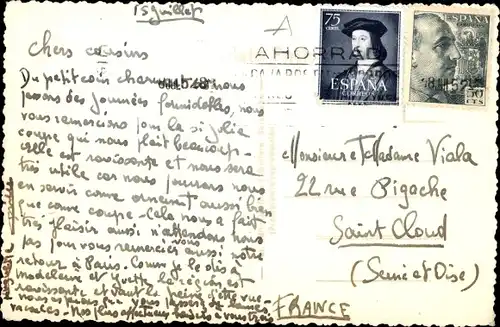 15 juillet
chers cousins
Du petit coin charmant où nous
passons des journées formidables, nous
vous remercions pour la si jolie
coupe qui nous plait beaucoup.
elle est ravissante et nous sera
très utile car nous pouvons nous
en servir comme ornement aussi bien
que comme coupe. Cela nous a fait
très plaisir aussi n'attendons nous
pas pour vous remercier vous notre
retour à Paris. Comme je le dis à
Madeleine et Yvette la région est
ravissante et vaut la peine d'être vue.
nous espérons que vous passez de bonnes
vacances. Nos plus affectueux baisers à vous trois
A
AHORRAD
75
CENTS
ESPAÑA
CORREOS
ESPAÑA
50
CTS
52
Monsieur et Madame Viala
22 rue Pigache
Saint Cloud
(Seine et Oise)
FRANCE